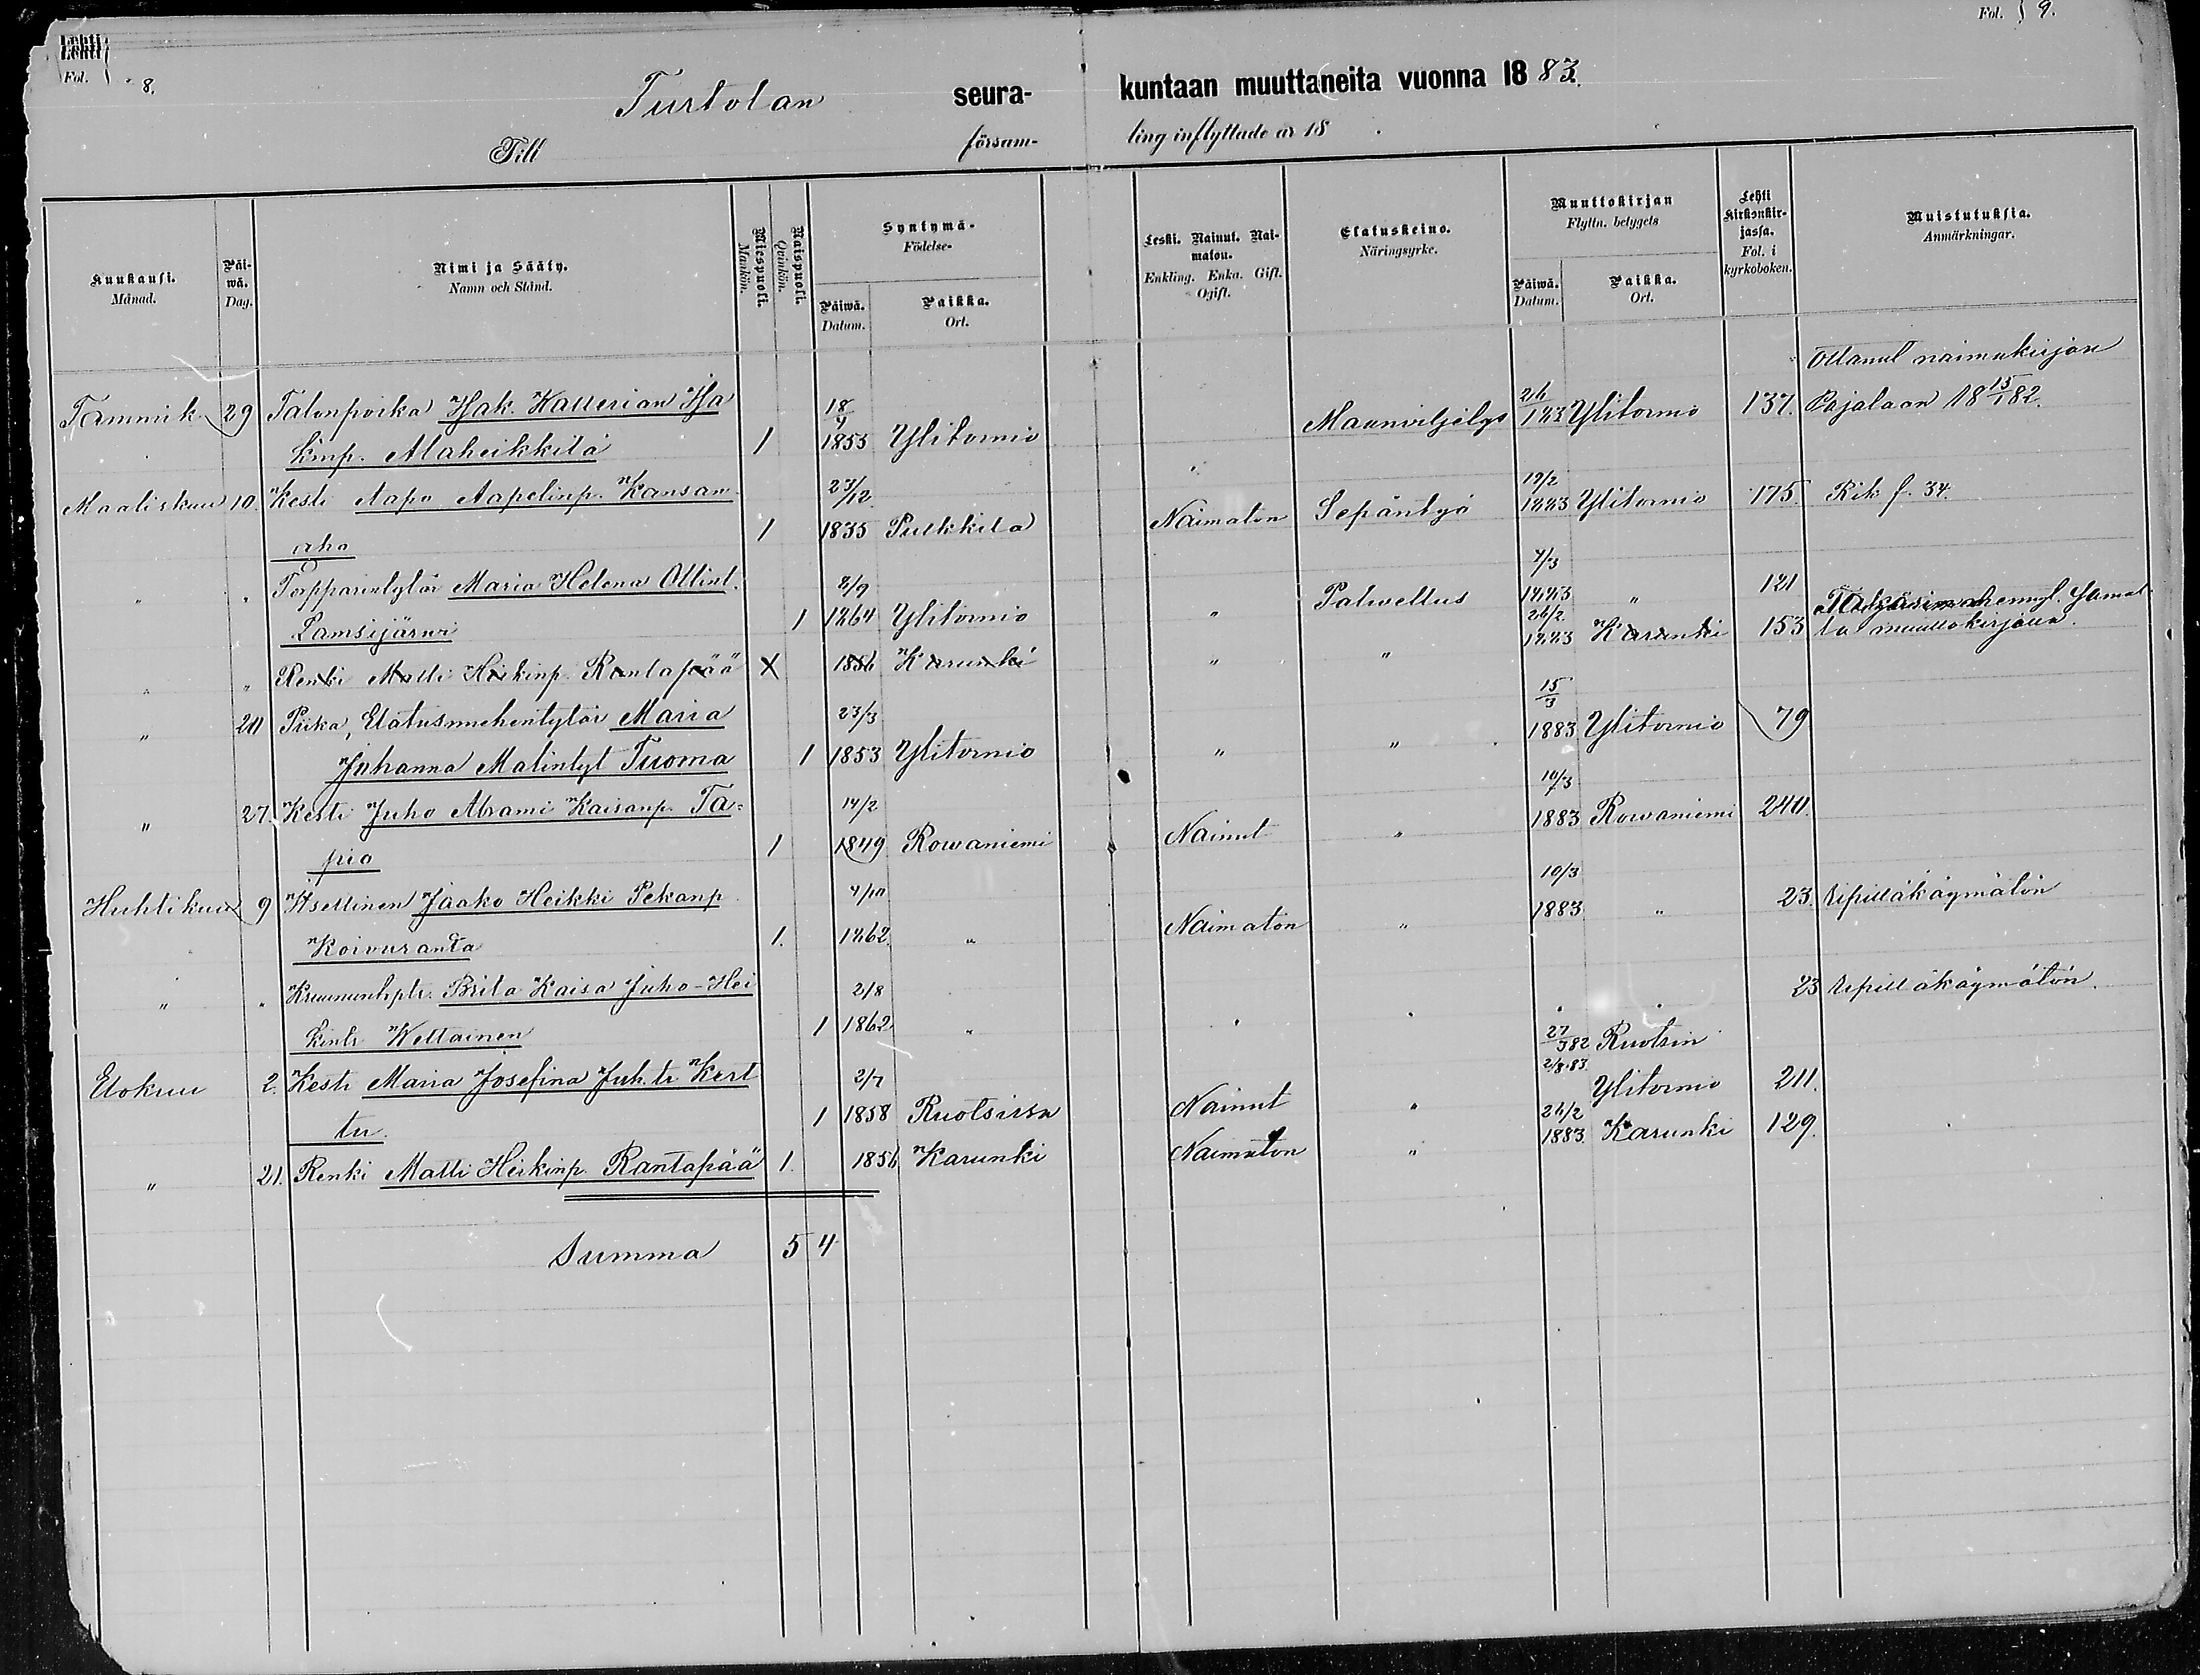 Lehti
Fol. 8.
Fol. 9.
Turtolan seura- kuntaan muuttaneita vuonna 1883.
Till försam- ling inflyttade år 18 .
Kuukausi.
Månad.
Päi-
wä.
Dag.
Nimi ja Sääty.
Namn och Stånd.
Miespuoli.
Mankön.
Naispuoli.
Qvinkön.
Syntymä-
Födelse-
Päiwä.
Datum.
Paikka.
Ort.
Leski. Nainut. Nai-
maton.
Enkling. Enka. Gift.
Ogift.
Elatuskeino.
Näringsyrke.
Muuttokirjan
Flyttn. betygets
Päiwä.
Datum.
Paikka.
Ort.
Lehti
Kirkonkir-
jassa.
Fol. i
kyrkoboken.
Muistutuksia.
Anmärkningar.
Ottanut naimakirjan
Tammik. 29 Talonpoika Isak. Walterian Isa 18/4 Maanviljelys 26/1 83 Ylitornio 137. Pajalaan 18 15/1 82.
kinp. Alaheikkilä 1 1855 Ylitornio
Maaliskuu 10. Kesti Aapo Aapelinp. Kansan 23/12 19/2
aho 1 1835 Pulkkila Naimaton Sepäntyö 1883 Ylitornio 175. Rik f. 34.
" " Torpparintytär Maria Helena Ollint. 8/9 7/3
Lamsijärwi 1 1864 Ylitornio " Palwellus 1883 " 121
" " Renki Matti Heikinp. Rantapää X 1856 Karunki " " 26/2 1883 Karunki 153 la muuttokirjalla.
" 20 Piika, Elatusmiehentytär Maria 23/3 15/3
Johanna Matintyt Tuoma 1 1853 Ylitornio " " 1883 Ylitornio 79
" 27. Kesti Juho Abrami Kaisanp. Ta- 14/2 10/3
pio 1 1849 Rowaniemi Nainut " 1883 Rowaniemi 240.
Huhtikuu 9 Itsellinen Jaako Heikki Pekanp. 4/10 10/3
Koivuranta 1. 1862 " Naimaton " 1883 " 23. Ripilläkäymätön
" " Kruununtrptr. Brita Kaisa Juho-Hei 2/8
kintr Wettainen 1 1862 " " " " " 23 Ripilläkäymätön.
27/3 82 Ruotsin
Elokuu 2. Kesti Maria Josefina Juh. tr Kert 2/7 2/8 83
tu. 1 1858 Ruotsissa Nainut " Ylitornio 211.
" 21. Renki Matti Heikinp. Rantapää 1. 1856 Karunki Naimaton " 26/2 1883 Karunki 129.
Summa 5 4